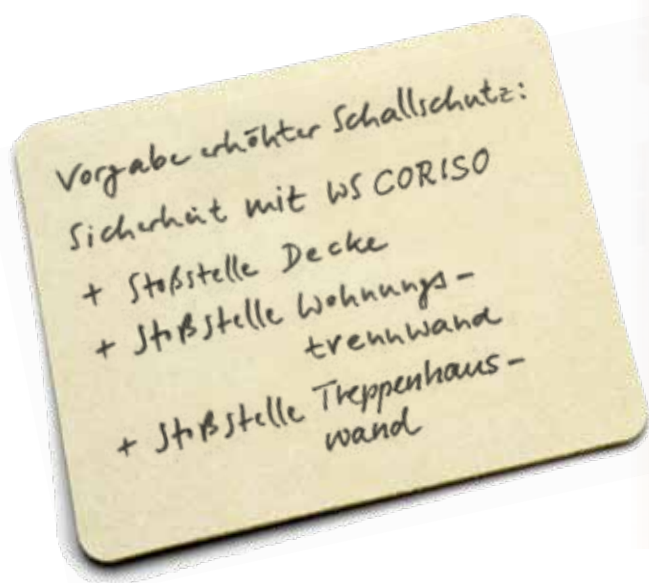 Vorgabe erhöhter Schallschutz:
Sicherheit mit WS CORISO
+ Stoßstelle Decke
+ Stoßstelle Wohnungs-
trennwand
+ Stoßstelle Treppenhaus-
wand